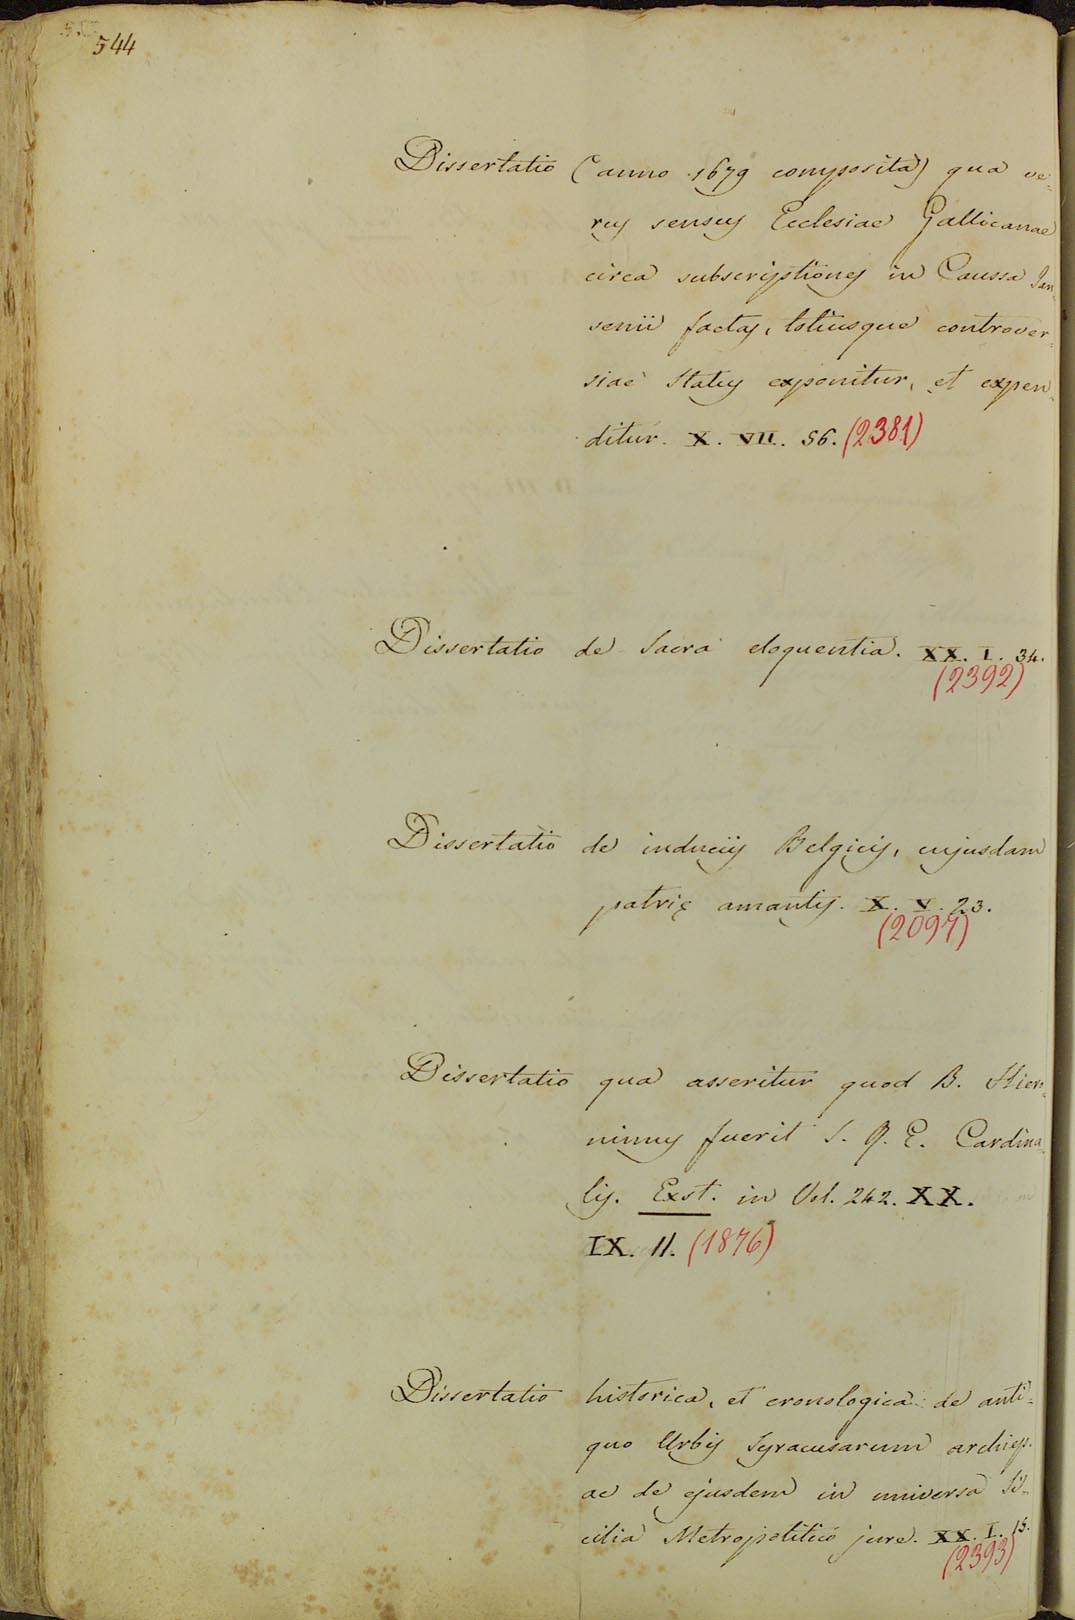 544
Dissertatio (anno 1679 composita) qua ve=
rus sensus Ecclesiae Gallicanae
circa subscriptiones in Caussa Jan=
senii factas, totiusque controver=
siae status exponitur, et expen=
ditur. X. VII. 56. (2381)
Dissertatio de Sacra eloquentia. XX. I. 34.
(2392)
Dissertatio de induciis Belgicis, cujusdam
patrię amantis. X. V. 23.
(2097)
Dissertatio qua asseritur quod B. Hiero=
nimus fuerit S. R. E. Cardina=
lis. Exst. in Vol. 242. XX.
IX. 11. (1876)
Dissertatio historica, et cronologica de anti=
quo Urbis Syracusarum archiep.
ac de ejusdem in universa Si=
cilia Metropolitico jure. XX. I. 15.
(2393)